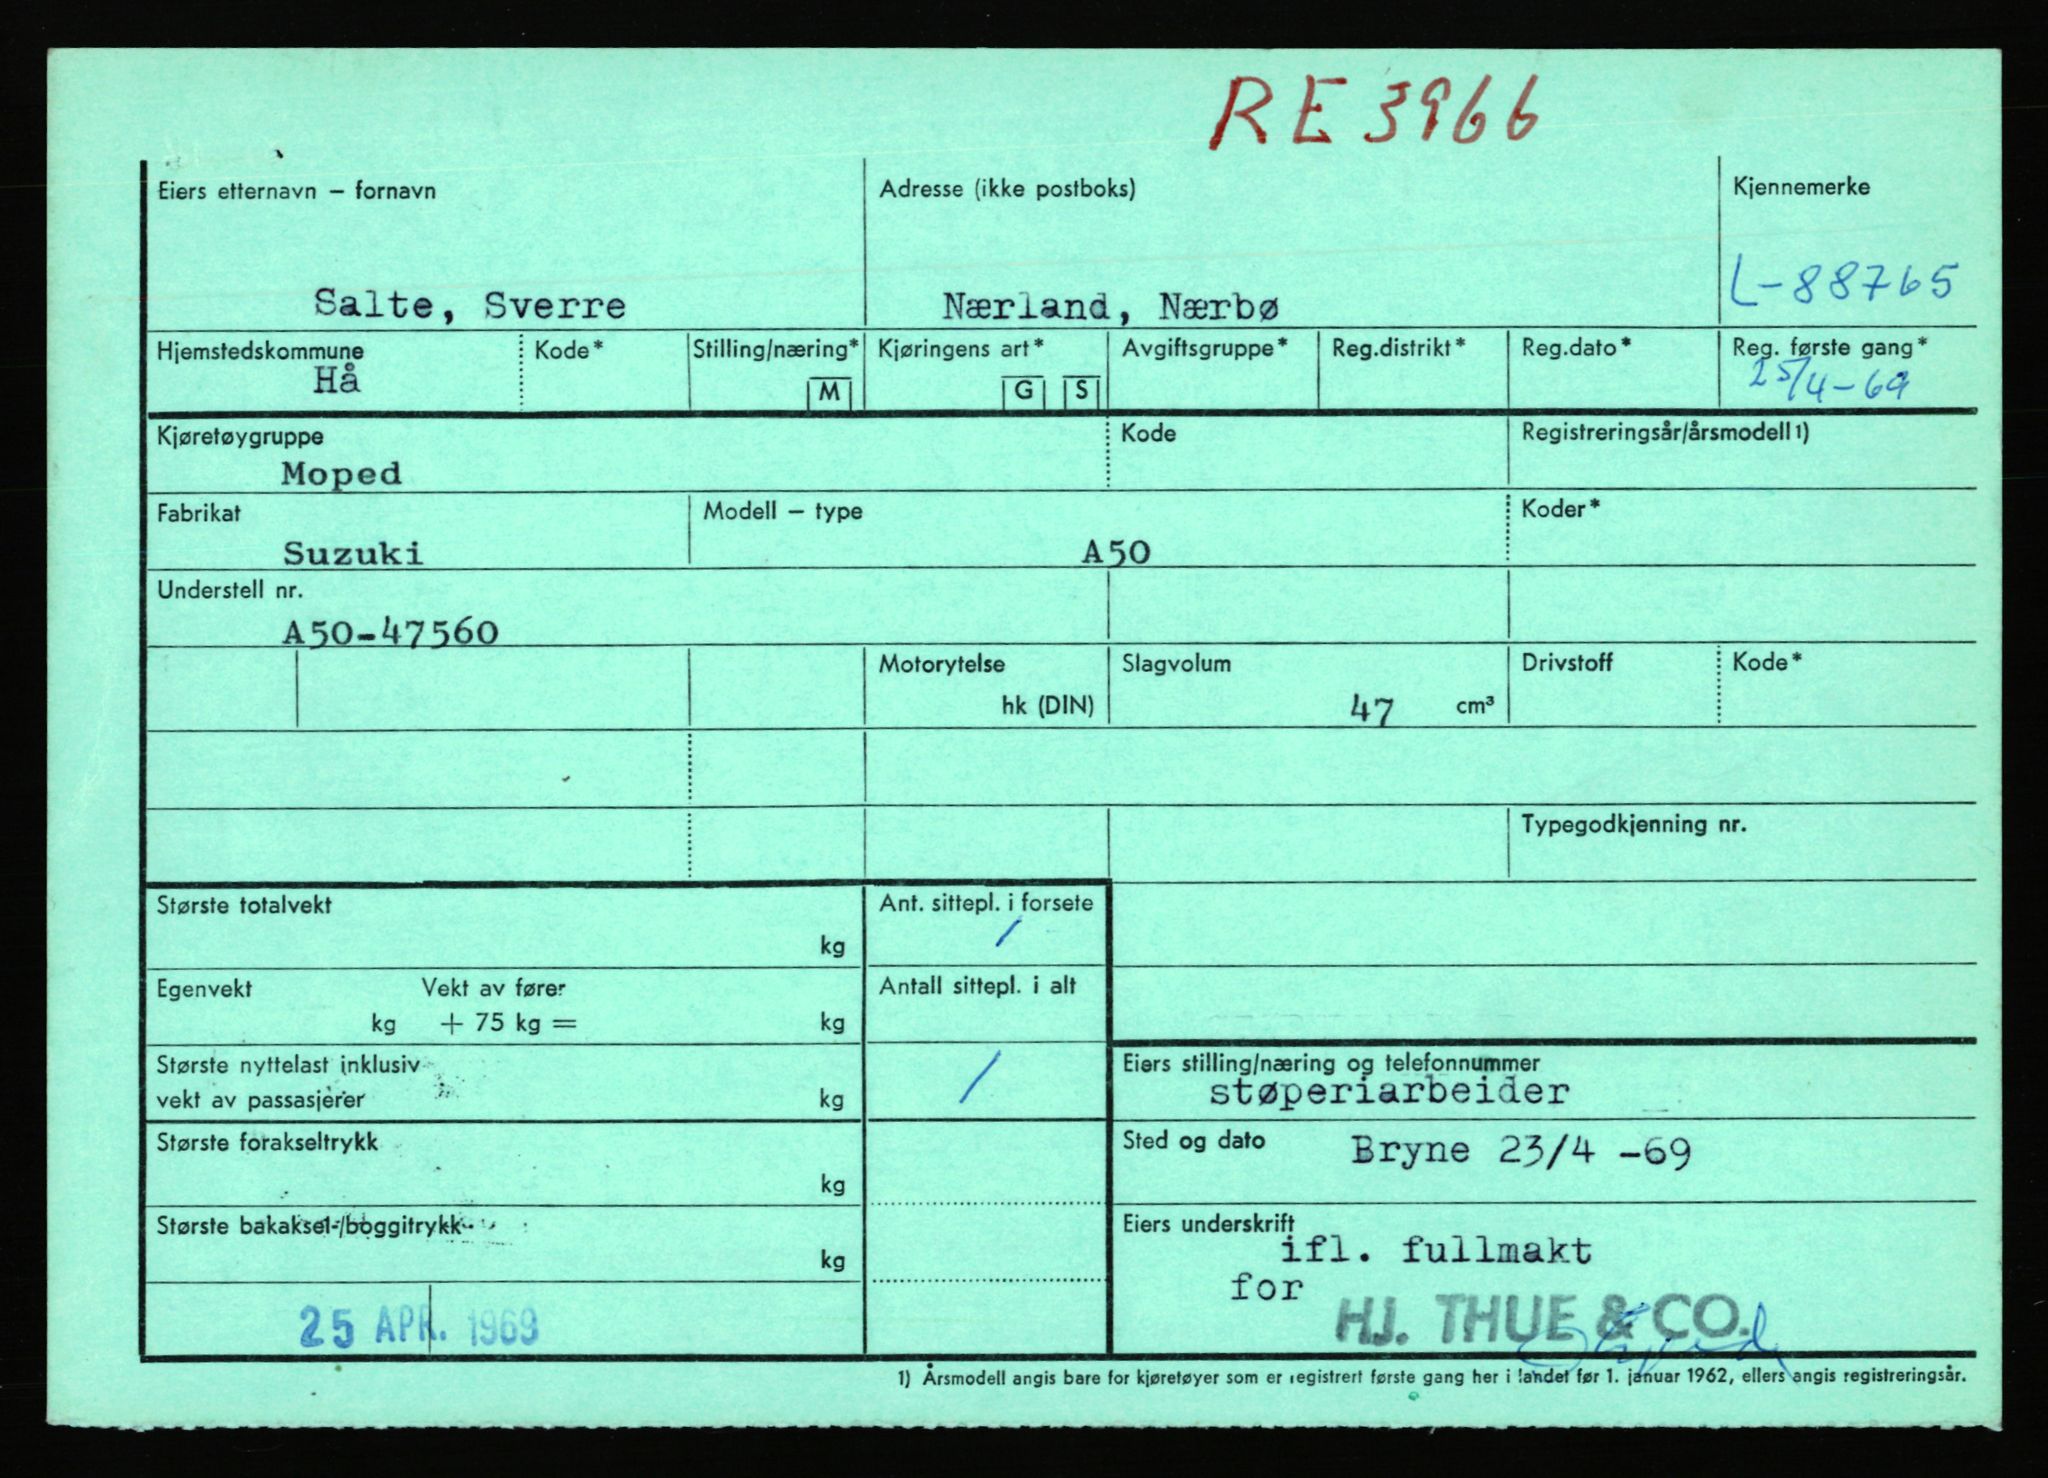 RE 3966
Eiers etternavn – fornavn
Adresse (ikke postboks)
Kjennemerke
Salte, Sverre
Nærland, Nærbø
L-88765
Hjemstedskommune
Kode*
Stilling/næring*
Kjøringens art*
Avgiftsgruppe*
Reg.distrikt*
Reg.dato*
Reg. første gang*
Hå
M
G
S
25/4-69
Kjøretøygruppe
Kode
Registreringsår/årsmodell1)
Moped
Fabrikat
Modell – type
Koder*
Suzuki
A50
Understell nr.
A50-47560
Motorytelse
Slagvolum
Drivstoff
Kode*
hk (DIN)
47 cm³
Typegodkjenning nr.
Største totalvekt
Ant. sittepl. i forsete
kg
/
Egenvekt
Vekt av fører
Antall sittepl. i alt
kg + 75 kg = kg
Største nyttelast inklusiv
vekt av passasjerer kg
/
Eiers stilling/næring og telefonnummer
støperiarbeider
Største forakseltrykk
kg
Sted og dato Bryne 23/4 -69
Største bakaksel-/boggitrykk
kg
Eiers underskrift
ifl. fullmakt
for
HJ. THUE & CO.
25 APR. 1969
1) Årsmodell angis bare for kjøretøyer som er registrert første gang her i landet før 1. januar 1962, ellers angis registreringsår.